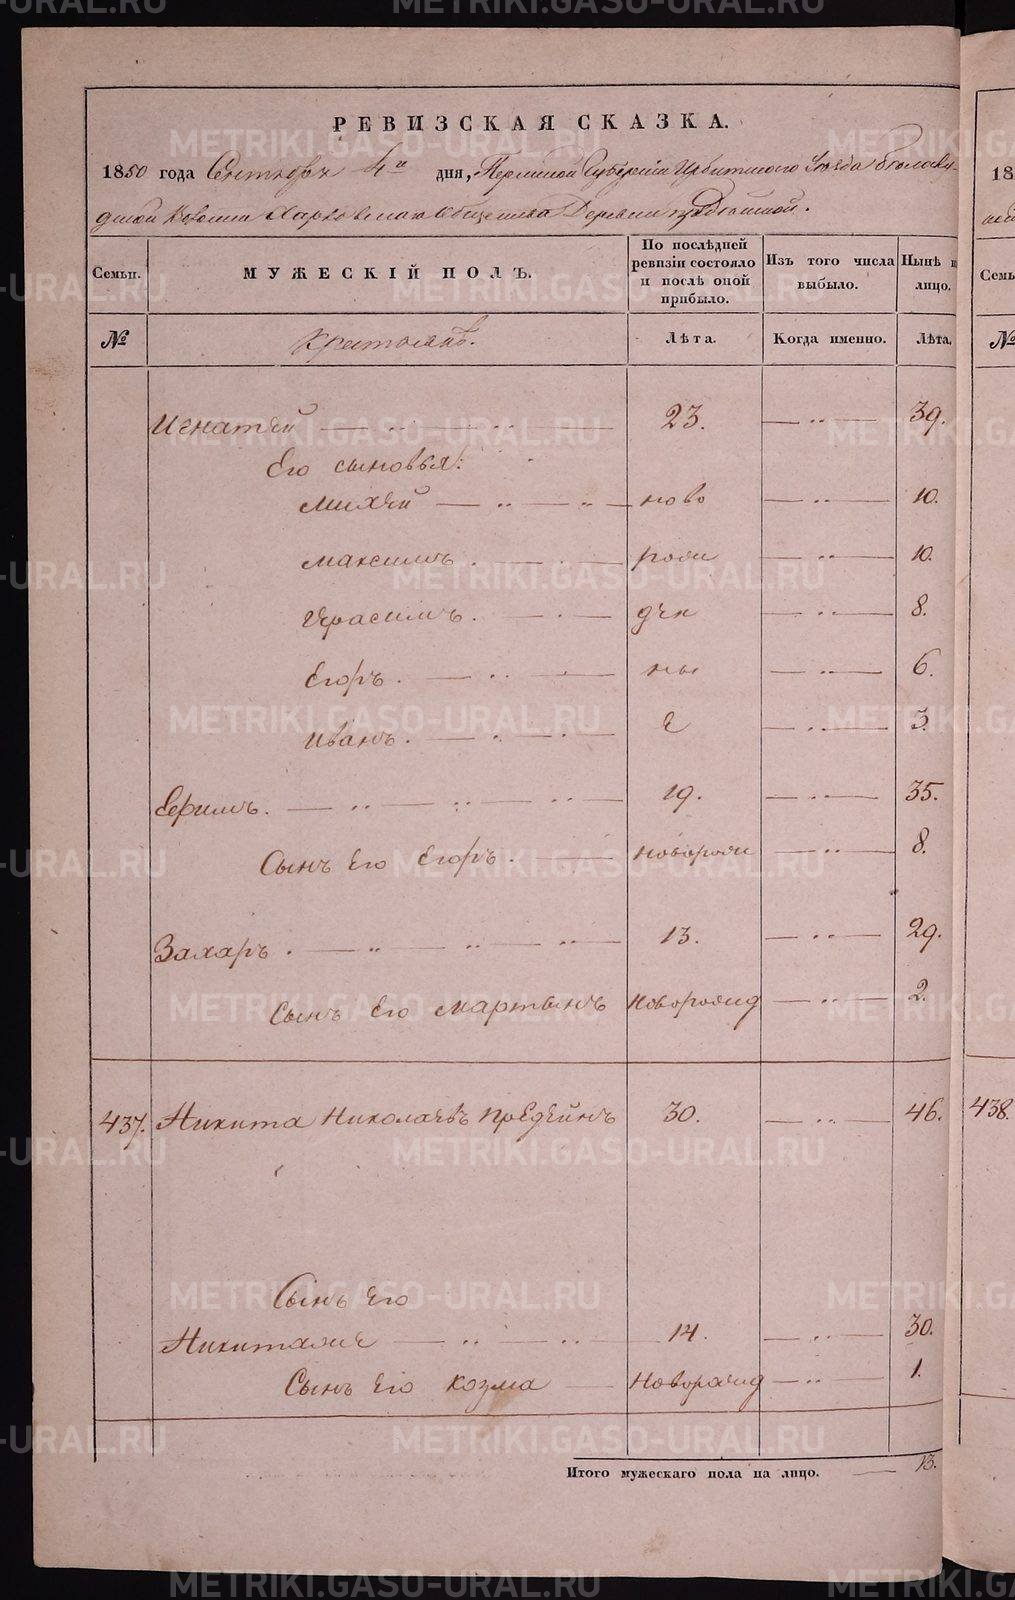 РЕВИЗСКАЯ СКАЗКА.
1850 года Сентября 4го дня, Пермской Губернии Ирбитского Уезда
Волости Харловскаго Общества Деревни
Семьи. МУЖЕСКІЙ ПОЛЪ. По послѣдней ревизіи состояло и послѣ оной прибыло. Изъ того числа выбыло. Нынѣ н лицо. Семь
№ Крестьянъ. Лѣта. Когда именно. Лѣта. №
Игнатей 23. 39.
Его сыновья:
Михей ново 10.
Максимъ рож 10.
Герасимъ ден 8.
Егоръ ны 6.
Иванъ е 3.
Ефимъ 19. 35.
Сынъ Его Егоръ новорож 8.
Захаръ 13. 29.
Сынъ Его Мартынъ Новорожд 2.
437. Никита Николаевъ Предеинъ 30. 46. 438.
Сынъ Его
Никиталие 14. 30.
Сынъ Его Козма Новорожд 1.
Итого мужескаго пола на лицо. 13.
METRIKI.GASO-URAL.RU